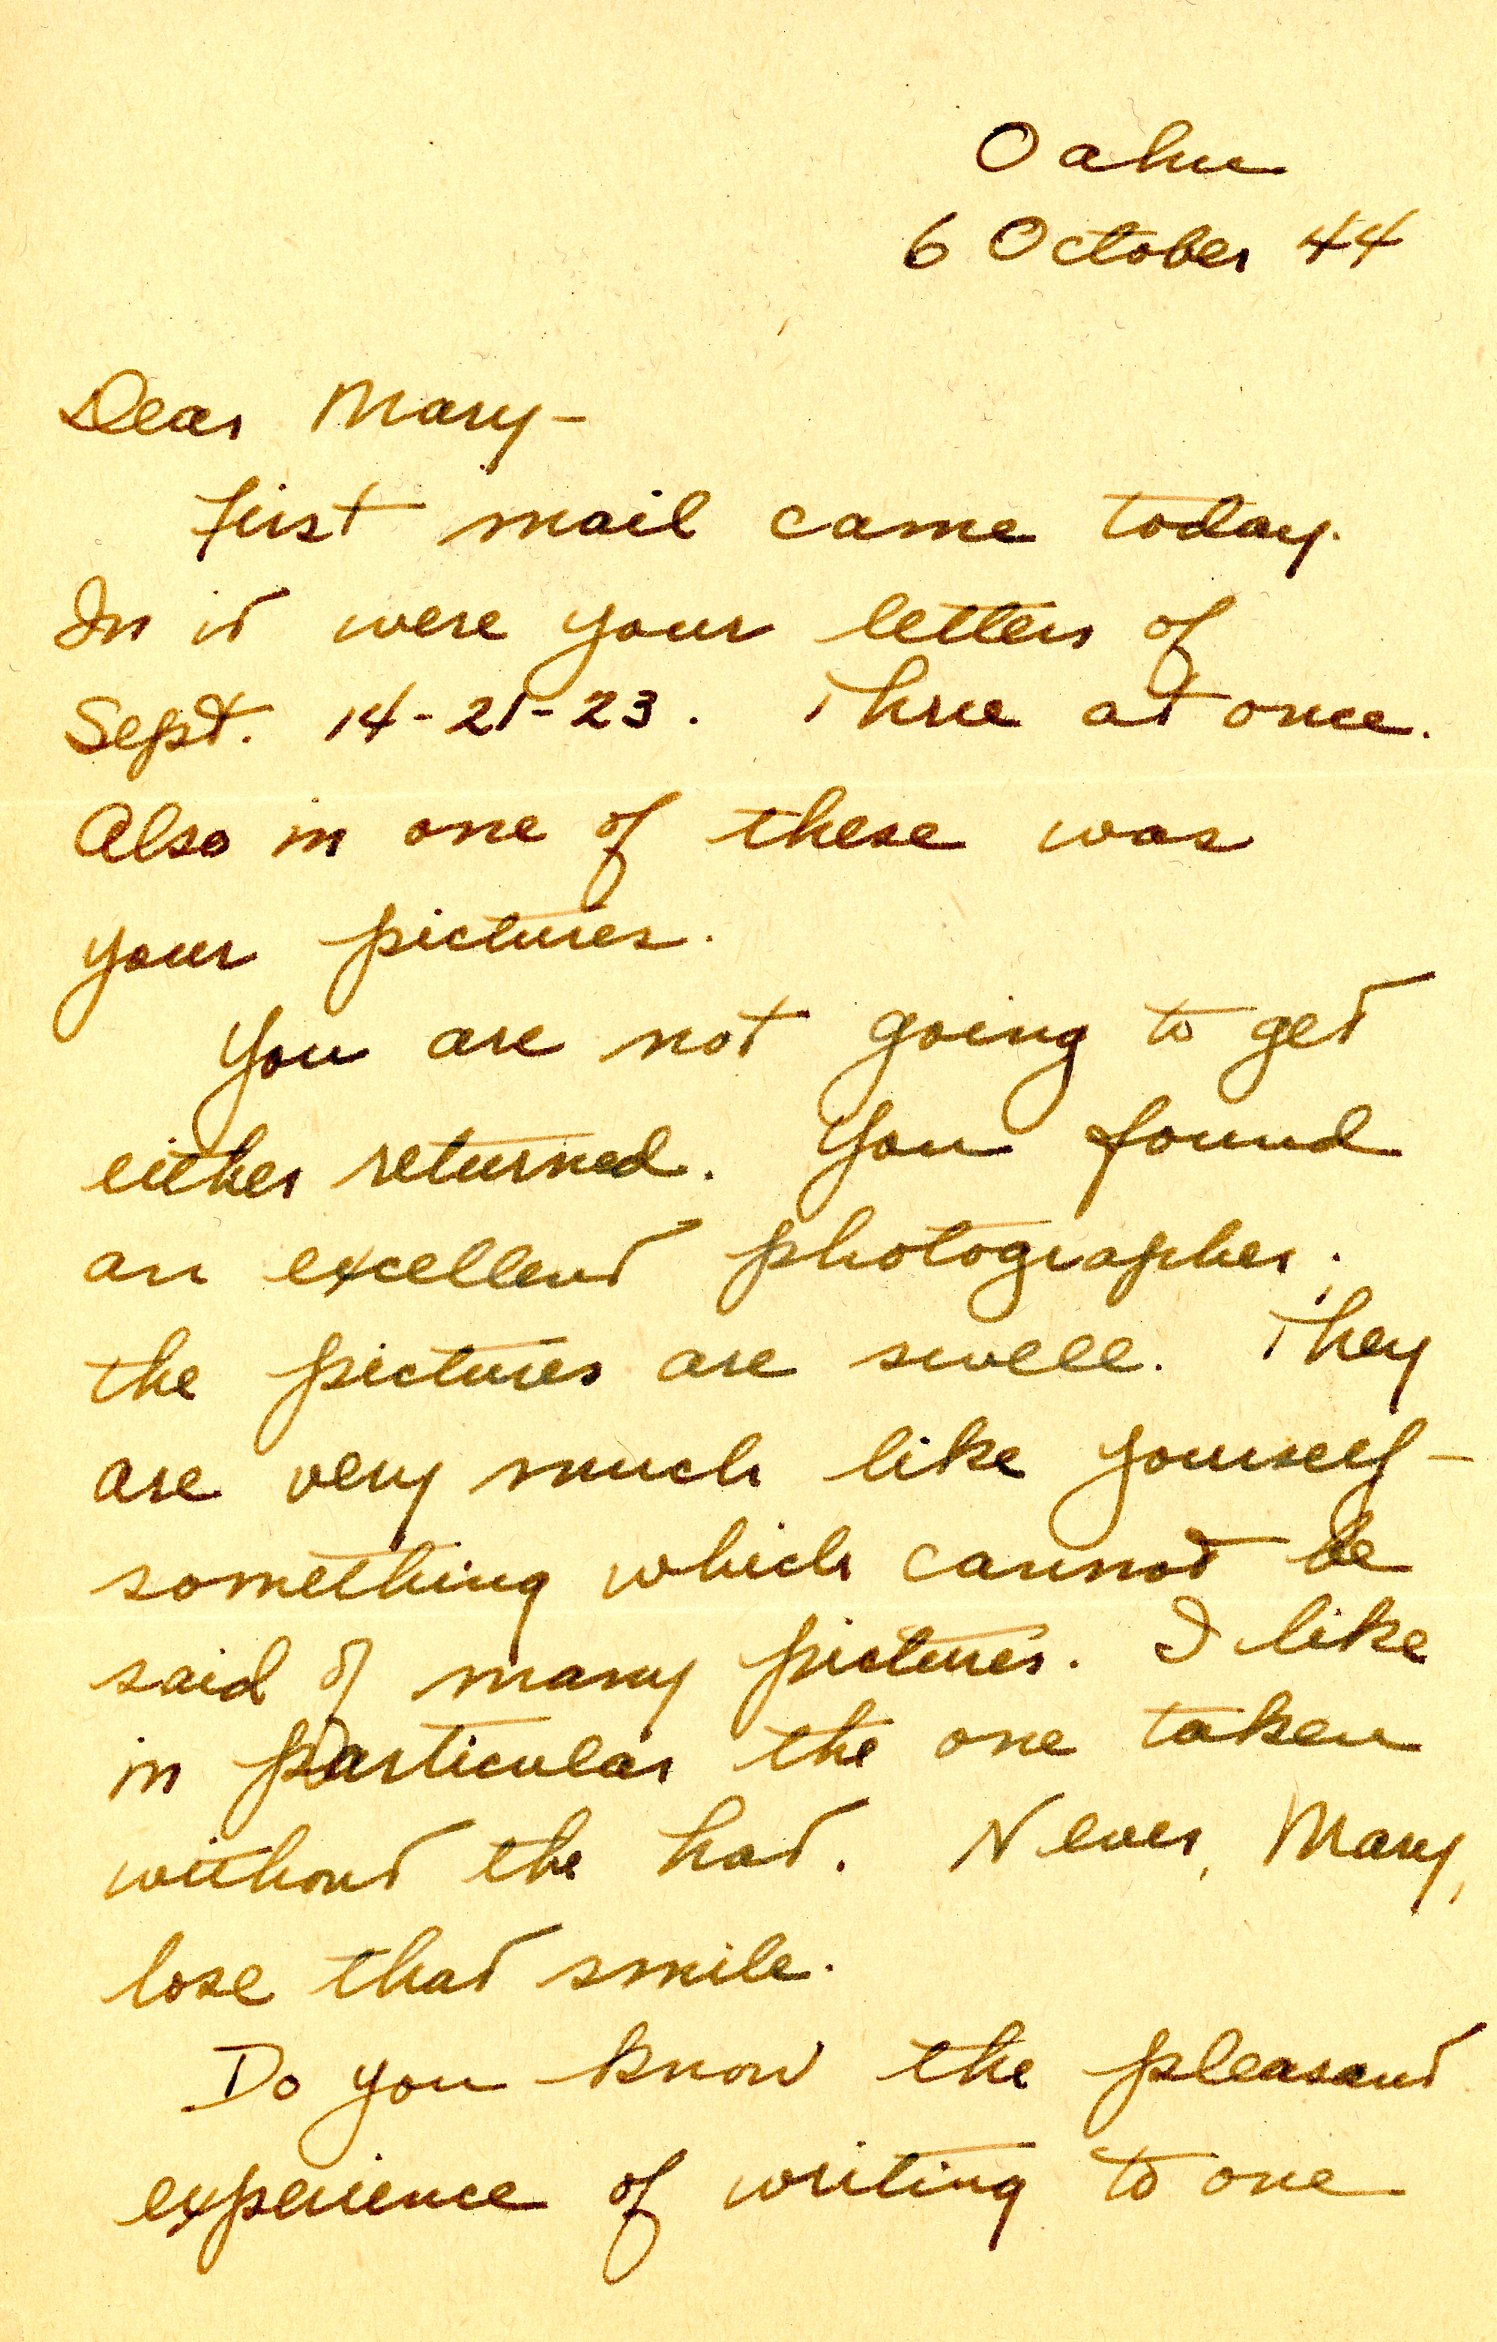 Oahu
6 October 44
Dear Mary-
First mail came today.
In it were your letters of
Sept. 14-21-23. Three at once.
Also in one of these was
your pictures.
You are not going to get
either returned. You found
an excellent photographer.
the pictures are swell. They
are very much like yourself-
something which cannot be
said of many pictures. I like
in particular the one taken
without the hat. Never, Mary,
lose that smile.
Do you know the pleasant
experience of writing to one